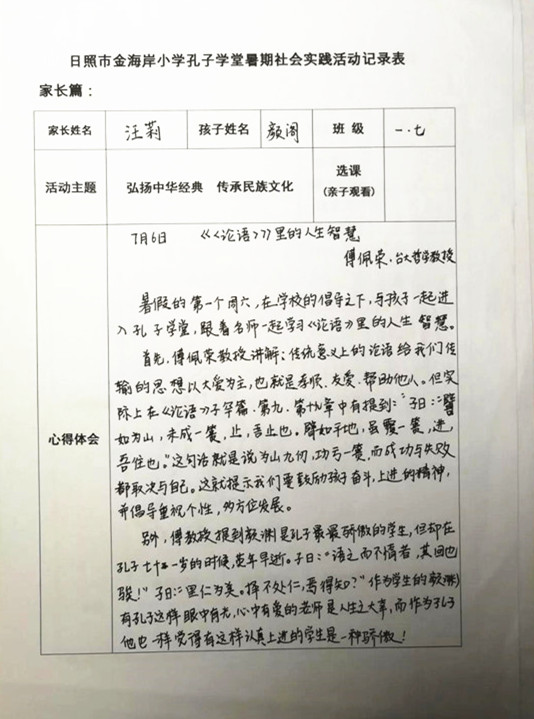 日照市金海岸小学孔子学堂暑期社会实践活动记录表
家长篇：
家长姓名 汪莉 孩子姓名 颜阁 班 级 一.七
活动主题 弘扬中华经典 传承民族文化 选课
(亲子观看)
心得体会
7月6日 《《论语》》里的人生智慧
傅佩荣.台大哲学教授
暑假的第一个周六，在学校的倡导之下，与孩子一起进
入孔子学堂，跟着名师一起学习《论语》里的人生智慧。
首先，傅佩荣教授讲解：传统意义上的论语给我们传
输的思想以大爱为主，也就是孝顺、友爱、帮助他人。但实
际上在《论语》子罕篇.第九.第十九章中有提到："子曰："譬
如为山，未成一篑，止，吾止也。譬如平地，虽覆一篑，进，
吾往也。"这句话就是说为山九仞，功亏一篑，而成功与失败
都取决与自己。这就提示我们要鼓励孩子奋斗，上进的精神，
并倡导重视个性，多方位发展。
另外，傅教授提到颜渊是孔子最最骄傲的学生，但却在
孔子七十一岁的时候，英年早逝。子曰："语之而不惰者，其回也
欤！"子曰："里仁为美。择不处仁，焉得知？"作为学生的颜渊
有孔子这样眼中有光，心中有爱的老师是人生之大幸，而作为孔子
他也一样觉得有这样认真上进的学生是一种骄傲！